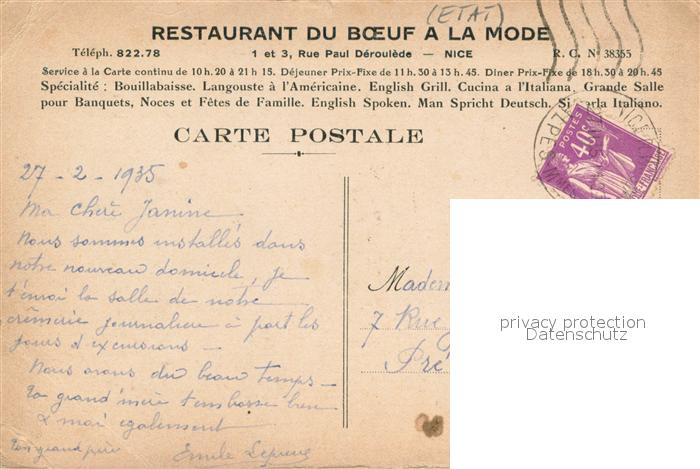 (ETAT)
RESTAURANT DU BŒUF A LA MODE
Téléph. 822.78 1 et 3, Rue Paul Déroulède — NICE R. C. N° 38355
Service à la Carte continu de 10 h. 20 à 21 h 15. Déjeuner Prix-Fixe de 11 h. 30 à 13 h. 45. Diner Prix-Fixe de 18 h. 30 à 20 h. 45
Spécialité : Bouillabaisse. Langouste à l'Américaine. English Grill. Cucina a l'Italiana. Grande Salle
pour Banquets, Noces et Fêtes de Famille. English Spoken. Man Spricht Deutsch. Si parla Italiano.
CARTE POSTALE
POSTES
40c
NICE
27-2-1935
Ma chère Janine
Nous sommes installés dans
notre nouveau domicile, je
t'envoi la salle de notre
crèmerie journalière à part les
jours d'excursions —
Nous avons du beau temps —
ta grand'mère t'embrasse bien
& moi egalement
Ton grand père Emile
Madem
7 Rue
Pré
privacy protection
Datenschutz